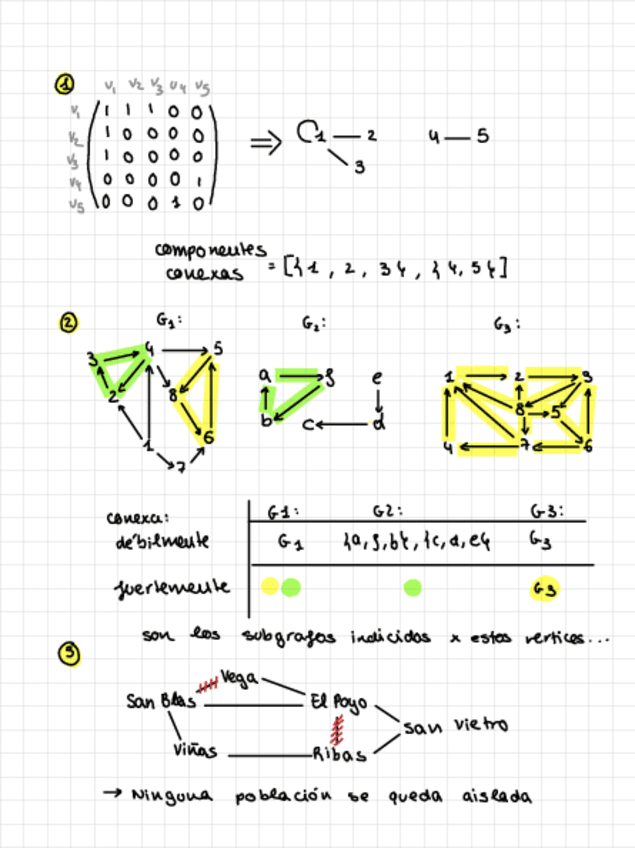 1
v1 v2 v3 v4 v5
v1 1 1 1 0 0
v2 1 0 0 0 0
v3 1 0 0 0 0
v4 0 0 0 0 1
v5 0 0 0 1 0
⇒ 1 — 2 4 — 5
3
componentes
conexas = [{1, 2, 3}, {4, 5}]
2 G1: G2: G3:
3 4 5 a f e 1 2 3
2 8 b c d 8 5
1 6 4 7 6
7
conexa: G1: G2: G3:
débilmente G1 {a, f, b}, {c, d, e} G3
fuertemente G3
son los subgrafos indicidos x estos vertices...
3
Vega
San Blas El Poyo
San Vietro
Viñas Ribas
→ Ninguna población se queda aislada